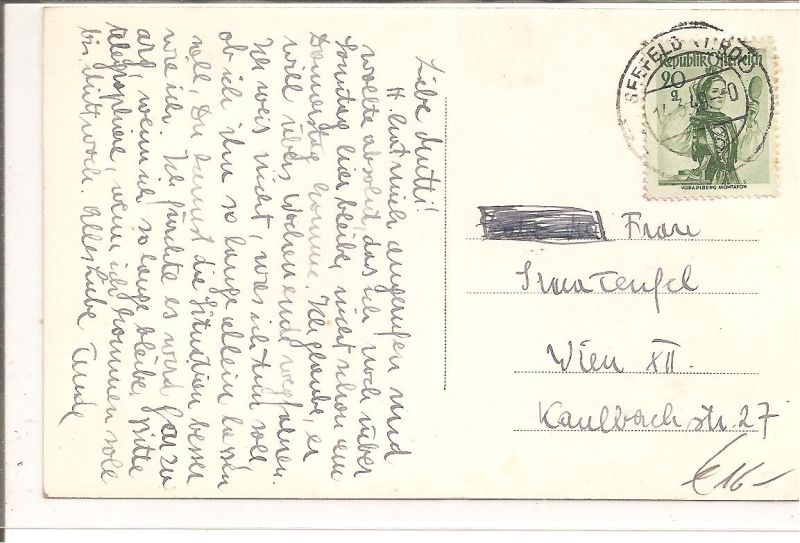 Liebe Mutti!
H. hat mich angerufen und
wollte absolut, das ich noch über
Sonntag hier bleibe, nicht schon am
Donnerstag komme. Ich glaube, er
will übers Wochenende wegfahren.
Ich weis nicht, was ich tun soll,
ob ich ihn so lange allein lassen
soll, Du kennst die Situation besser
wie ich. Ich fürchte es wird gar zu
arg, wenn ich so lange bleibe. Bitte
telegraphiere, wenn ich kommen soll
bis Mittwoch. Alles Liebe
SEEFELD (TIROL)
Republik Österreich
20
g
VORARLBERG, MONTAFON
Frau
Irma Teufel
Wien XII.
Kaulbachstr. 27
€ 16-